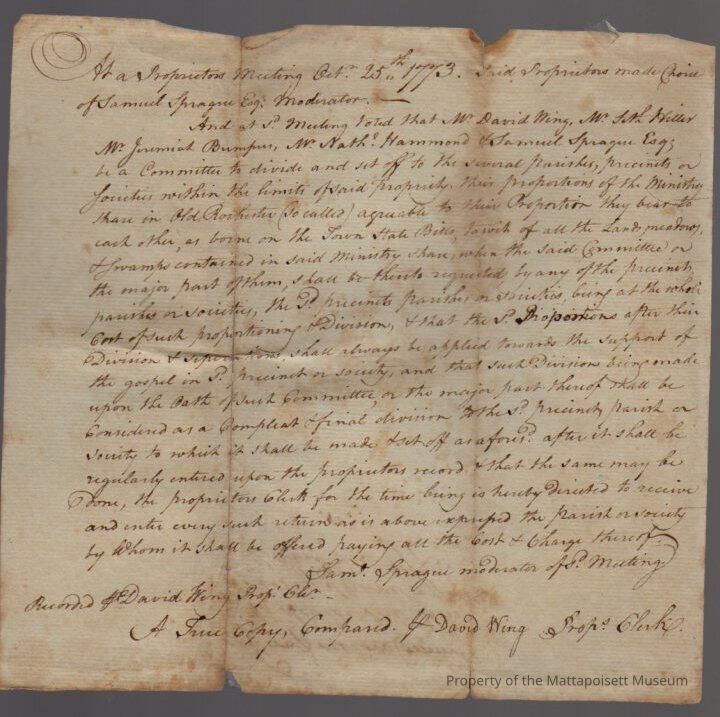 At a Proprietors Meeting Octr. 25th 1773. Said Proprietors made Choice
of Samuel Sprague Esq; Moderator.—
And at sd. Meeting Voted that Mr David Wing, Mr. Seth Hiller
Mr. Jeremiah Bumpus, Mr. Nathl. Hammond & Samuel Sprague Esq;
be a Committee to divide and set off to the several parishes, precincts or
Societies within the limits of said Propriety, their proportions of the Ministry
share in Old Rochester (so called) agreable to their Proportion they bear to
each other, as borne on the Town State Bills, to wit of all the Lands, meadows,
& swamps contained in said Ministry share, when the said Committee or
the major part of them, shall be thereto requested by any of the precincts
parishes or societies, the sd. precincts parishes or societies, being at the whole
Cost of such proportioning & Division, & that the sd. Proportions after their
Division & seperations, shall always be applied towards the support of
the gospel in sd. precinct or society, and that such Division being made
upon the Oath of such Committee, or the major part thereof shall be
Considered as a Compleat & final division to the sd. precinct, parish or
society to which it shall be made & set off as aforesd. after it shall be
regularly entered upon the proprietors record & that the same may be
done, the proprietors Clerk for the time being is hereby directed to receive
and enter every such return as is above expressed the parish or society
by Whom it shall be offered paying all the Cost & Charge thereof.
Saml. Sprague moderator of sd. Meeting
Recorded David Wing Propr. Cler
A True Copy, Compared. David Wing Props. Clerk.
Property of the Mattapoisett Museum